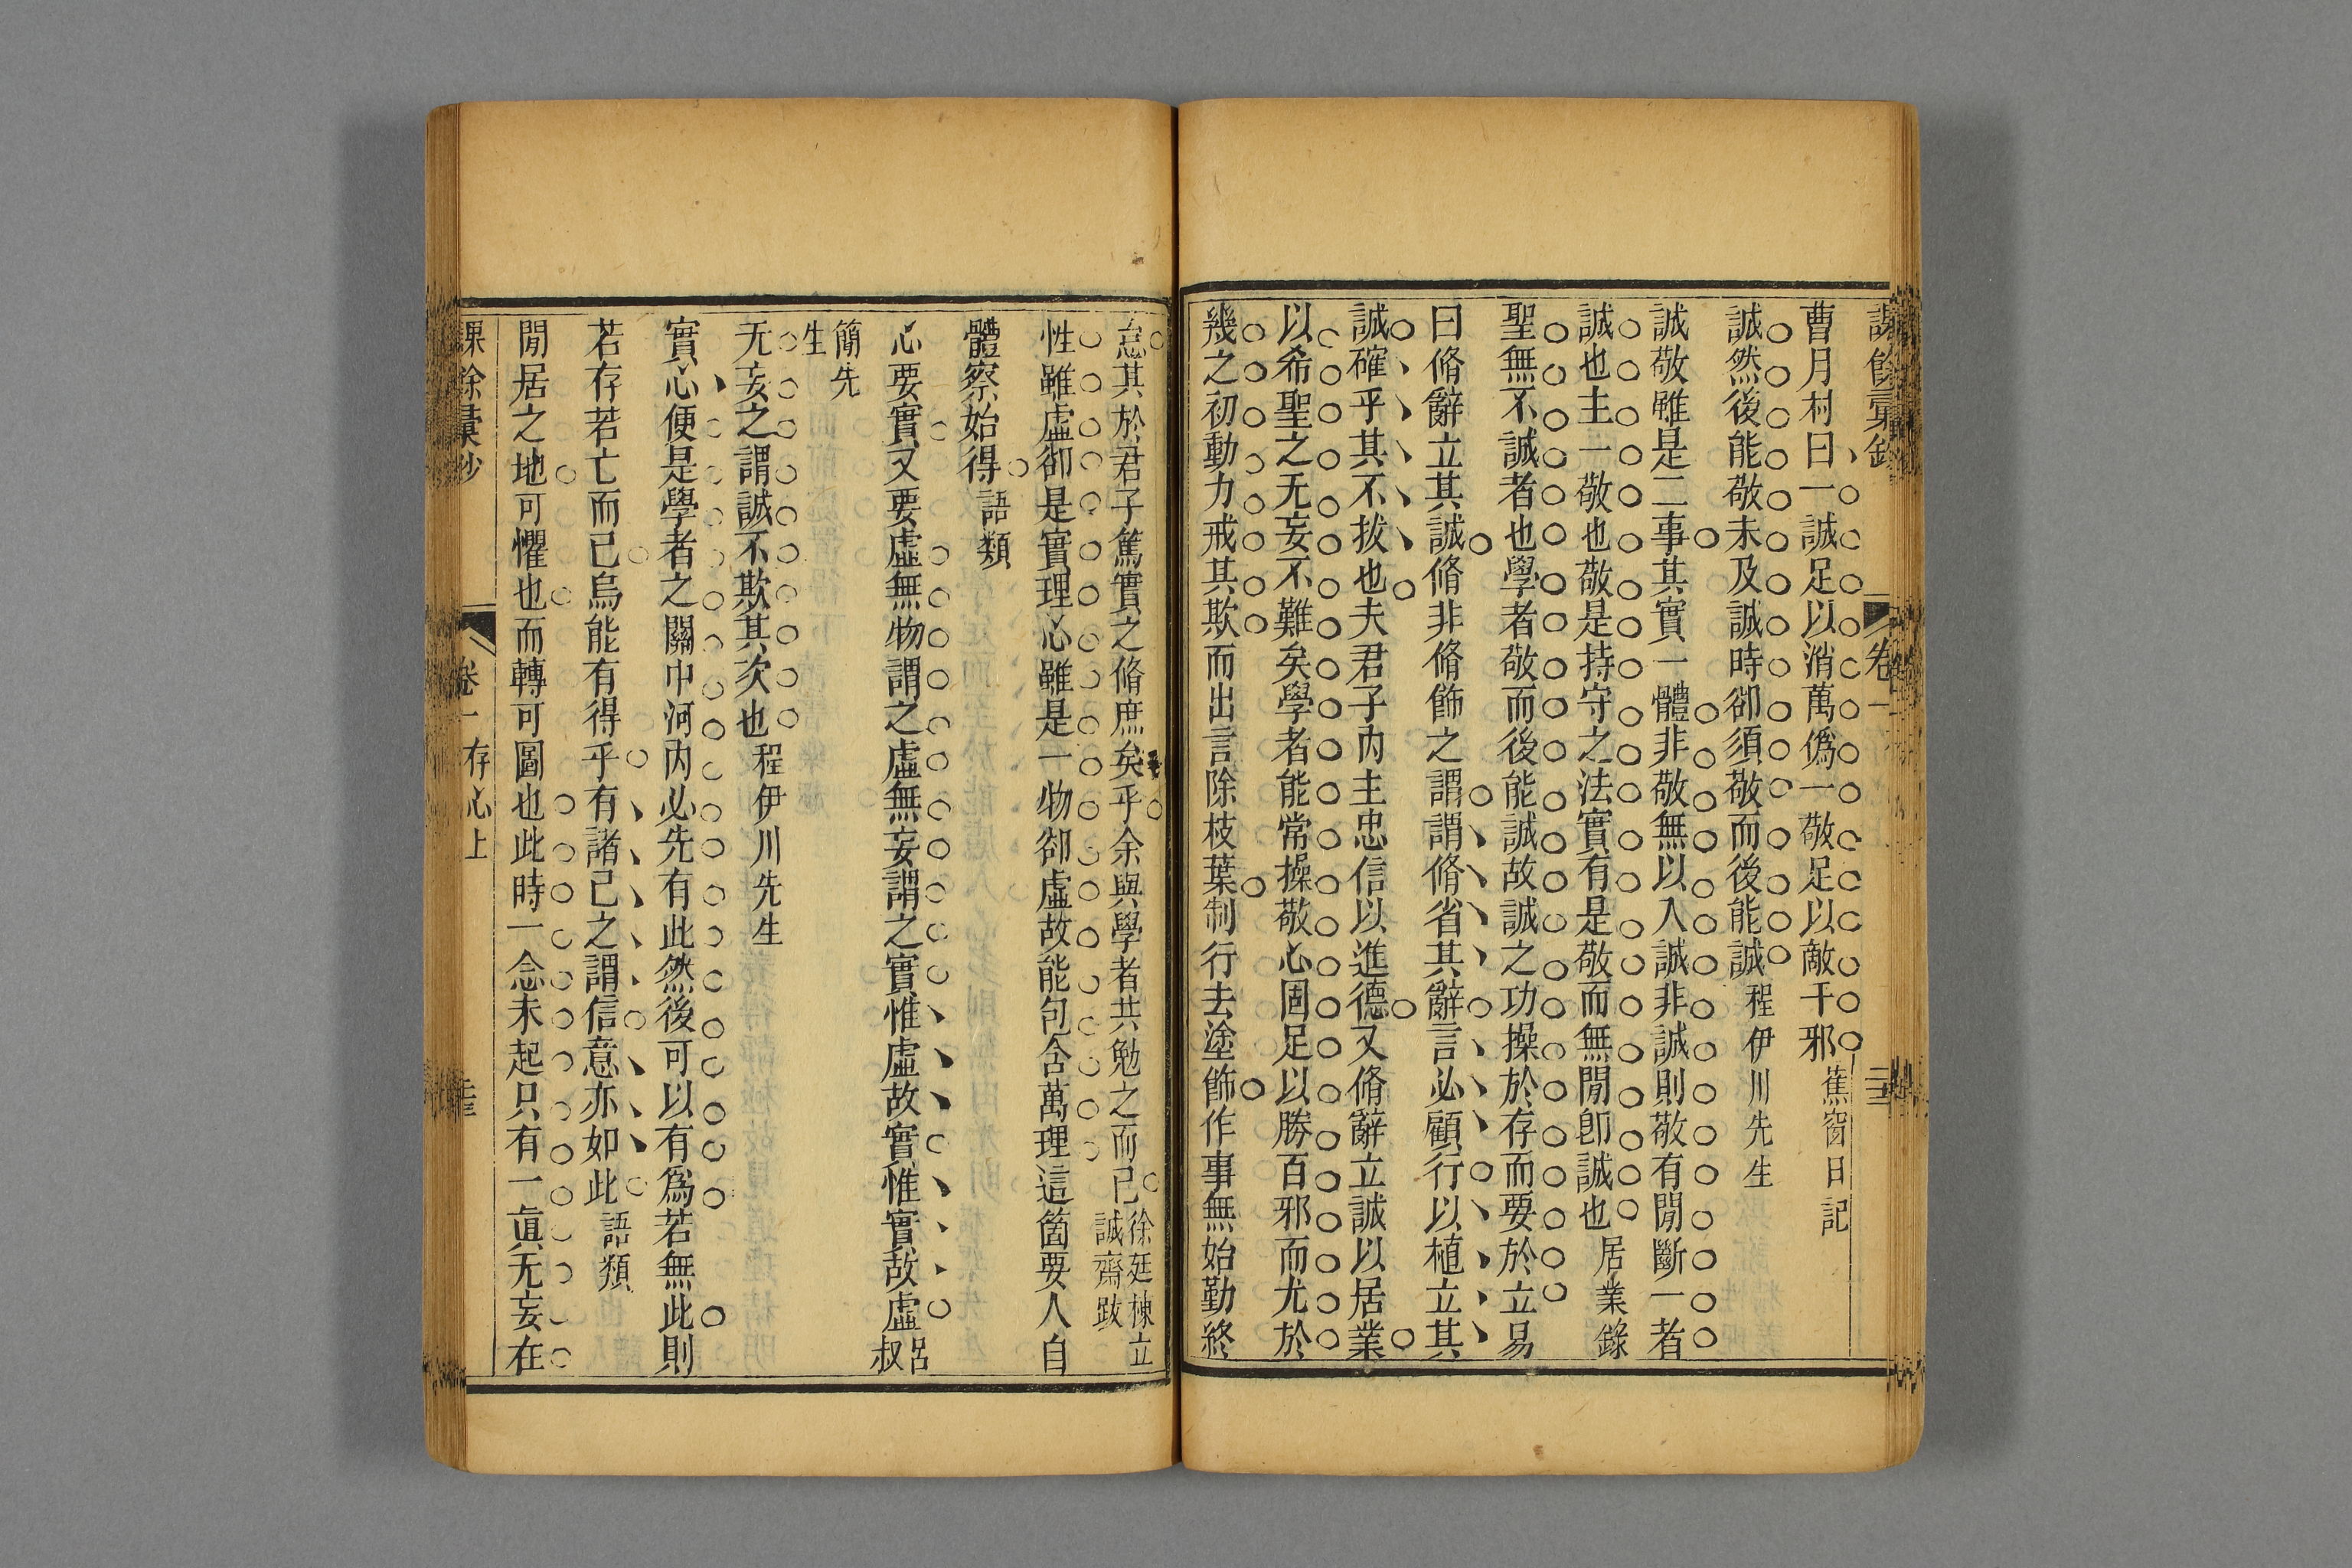 課餘彙鈔 卷一
曹月村曰一誠足以消萬僞一敬足以敵千邪蕉窗日記
誠然後能敬未及誠時卻須敬而後能誠程伊川先生
誠敬雖是二事其實一體非敬無以入誠非誠則敬有閒斷一者
誠也主一敬也敬是持守之法實有是敬而無閒卽誠也居業錄
聖無不誠者也學者敬而後能誠故誠之功操於存而要於立易
曰脩辭立其誠脩非脩飾之謂謂脩省其辭言必顧行以植立其
誠確乎其不拔也夫君子內主忠信以進德又脩辭立誠以居業
以希聖之无妄不難矣學者能常操敬心固足以勝百邪而尤於
幾之初動力戒其欺而出言除枝葉制行去塗飾作事無始勤終
怠其於君子篤實之脩庶矣乎余與學者共勉之而已徐廷棟立
誠齋跋
性雖虛卻是實理心雖是一物卻虛故能包含萬理這箇要人自
體察始得語類
心要實又要虛無物謂之虛無妄謂之實惟虛故實惟實故虛呂
叔
簡先
生
无妄之謂誠不欺其次也程伊川先生
實心便是學者之關中河內必先有此然後可以有爲若無此則
若存若亡而已烏能有得乎有諸己之謂信意亦如此語類
閒居之地可懼也而轉可圖也此時一念未起只有一眞无妄在
課餘彙鈔 卷一 存心上